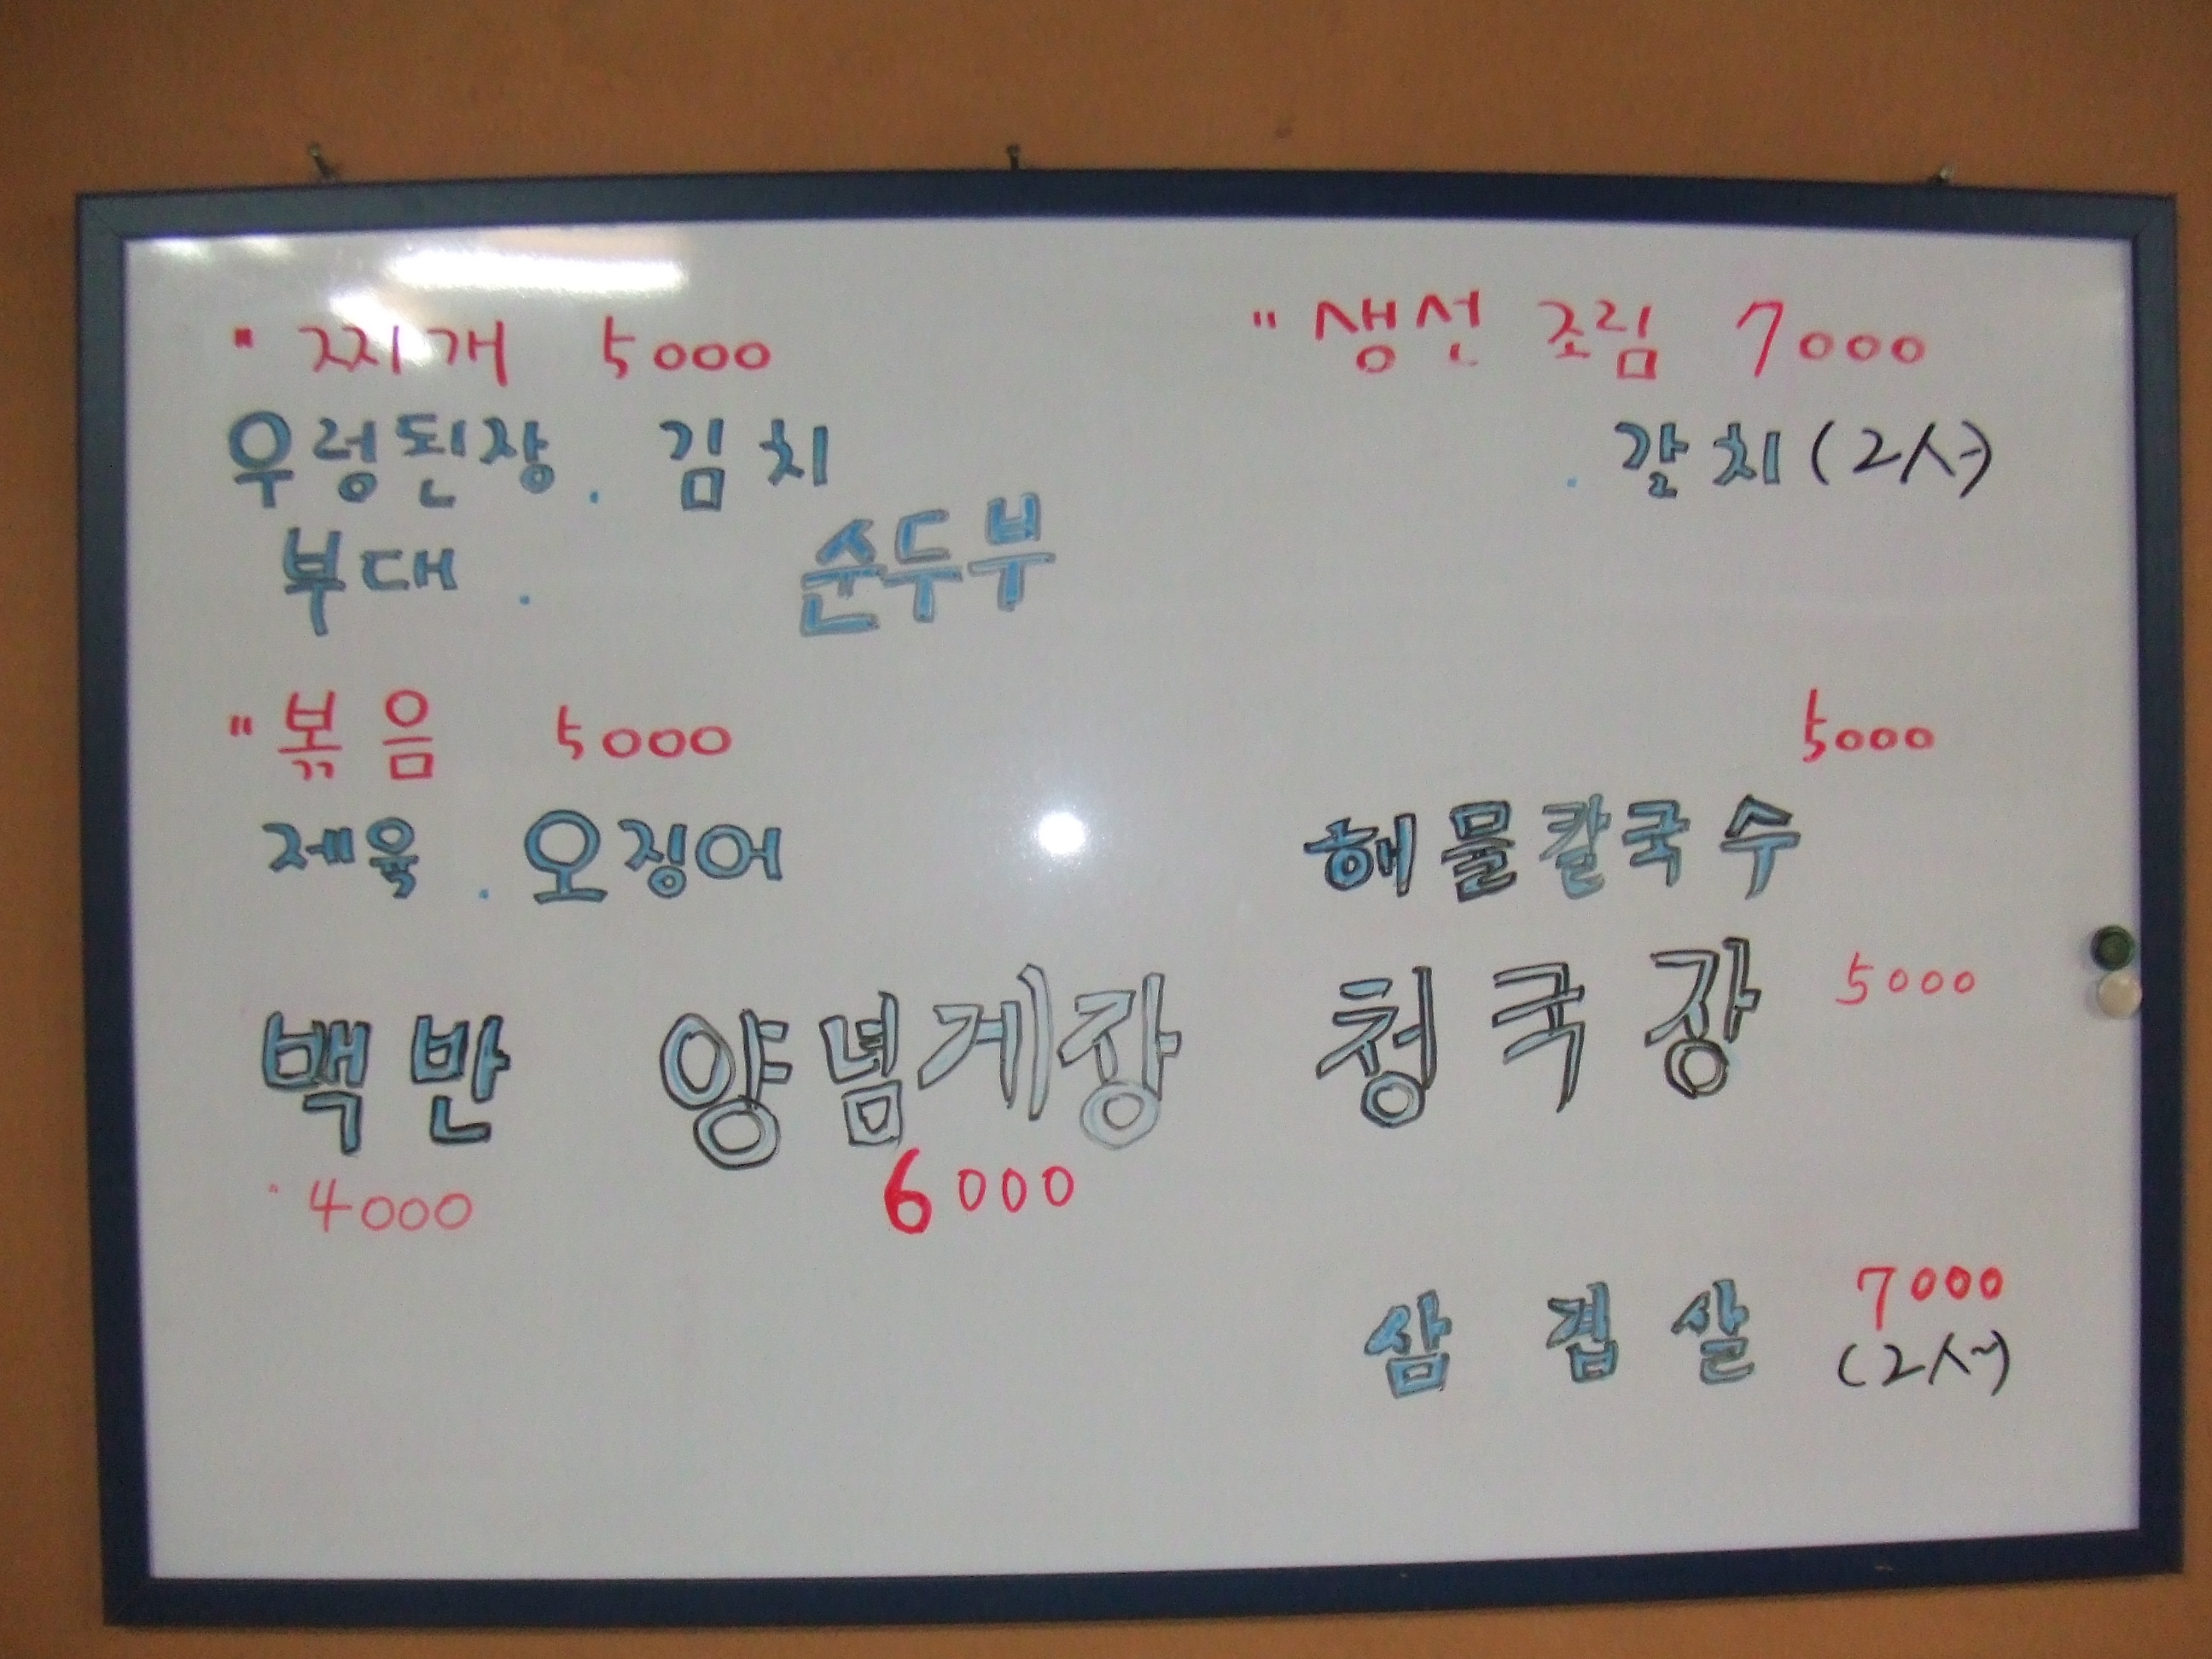 " 찌개 5000
우렁된장 . 김치
부대 . 순두부
" 볶음 5000
제육 . 오징어
백반 양념게장
4000 6000
" 생선 조림 7000
. 갈치 (2人)
5000
해물칼국수
청국장 5000
삼겹살 7000
(2人)